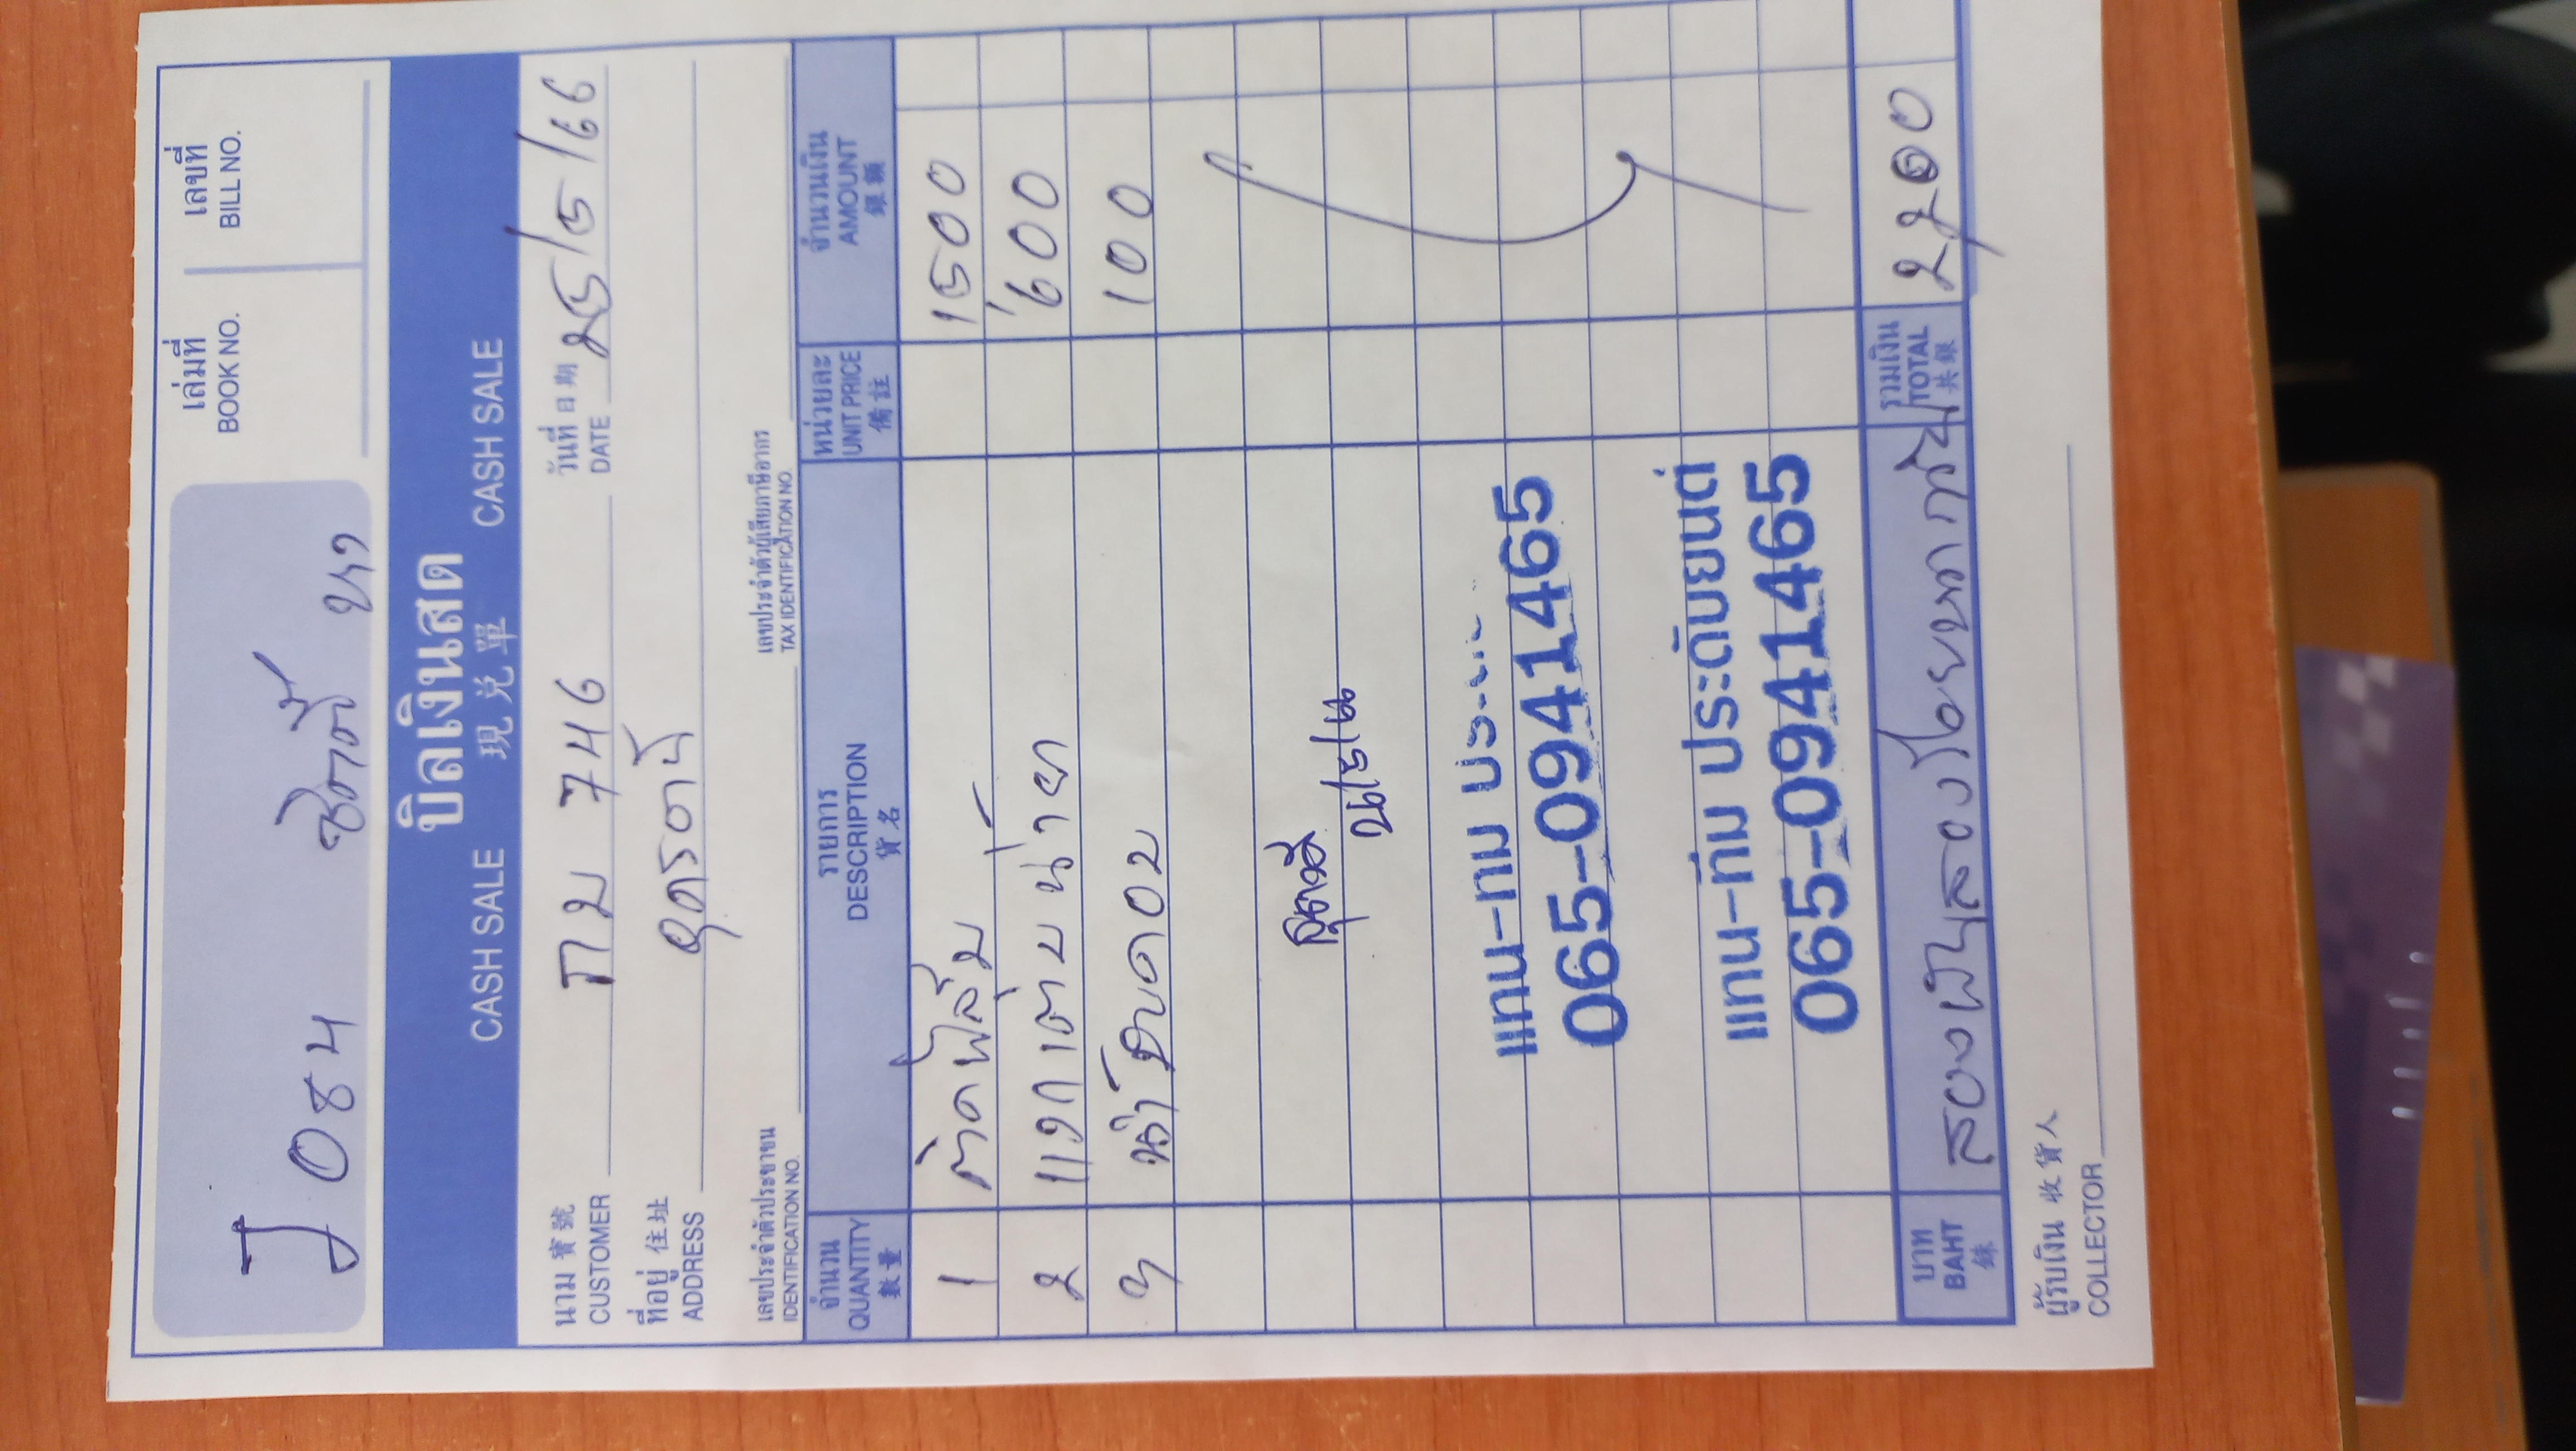 J 084 ซิตี้ ขาว
เล่มที่ เลขที่
BOOK NO. BILL NO.
บิลเงินสด
CASH SALE 現兌單 CASH SALE
นาม 寶號 กบ 746 วันที่ 日期 25/5/66
CUSTOMER DATE
ที่อยู่ 住址 อุดรธานี
ADDRESS
เลขประจำตัวประชาชน เลขประจำตัวผู้เสียภาษีอากร
IDENTIFICATION NO. TAX IDENTIFICATION NO.
จำนวน รายการ หน่วยละ จำนวนเงิน
QUANTITY DESCRIPTION UNIT PRICE AMOUNT
數量 貨名 備註 銀額
1 ติดฟิล์ม 1500
2 600
3 100
แทน-ทีม
065-0941465
แทน-ทีม ประดับยนต์
065-0941465
บาท สองพันสองร้อยบาทถ้วน รวมเงิน 2200
BAHT TOTAL
銖 共銀
ผู้รับเงิน 收貨人
COLLECTOR